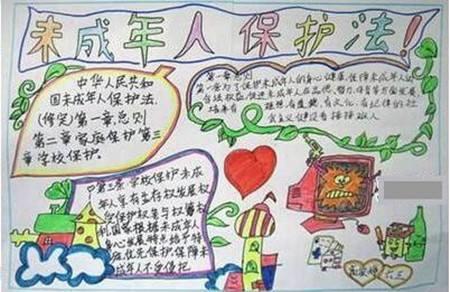 未成年人保护法!
中华人民共和
国未成年人保护法.
(修定)第一章总则
第二章家庭保护第三
章学校保护。
第一章总则
第一条为了保护未成年人的身心健康,保障未成年人的
合法权益,促进未成年人在品德、智力、体质等方面全面发展
培养有 理想、有道德、有文化、有纪律的社
会主义建设者接班人
第三条 学校保护未成
年人享有生存权发展权
受保护权参与权等权
利国家根据未成年人
身心发展特点给予特
殊优先保护保障未
成年人不受侵犯
六三